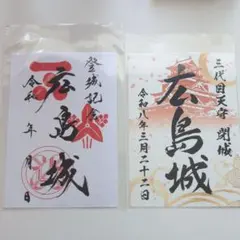 登城記念
広島城
令和 年 月 日
三代目天守 閉城
広島城
令和八年三月二十二日